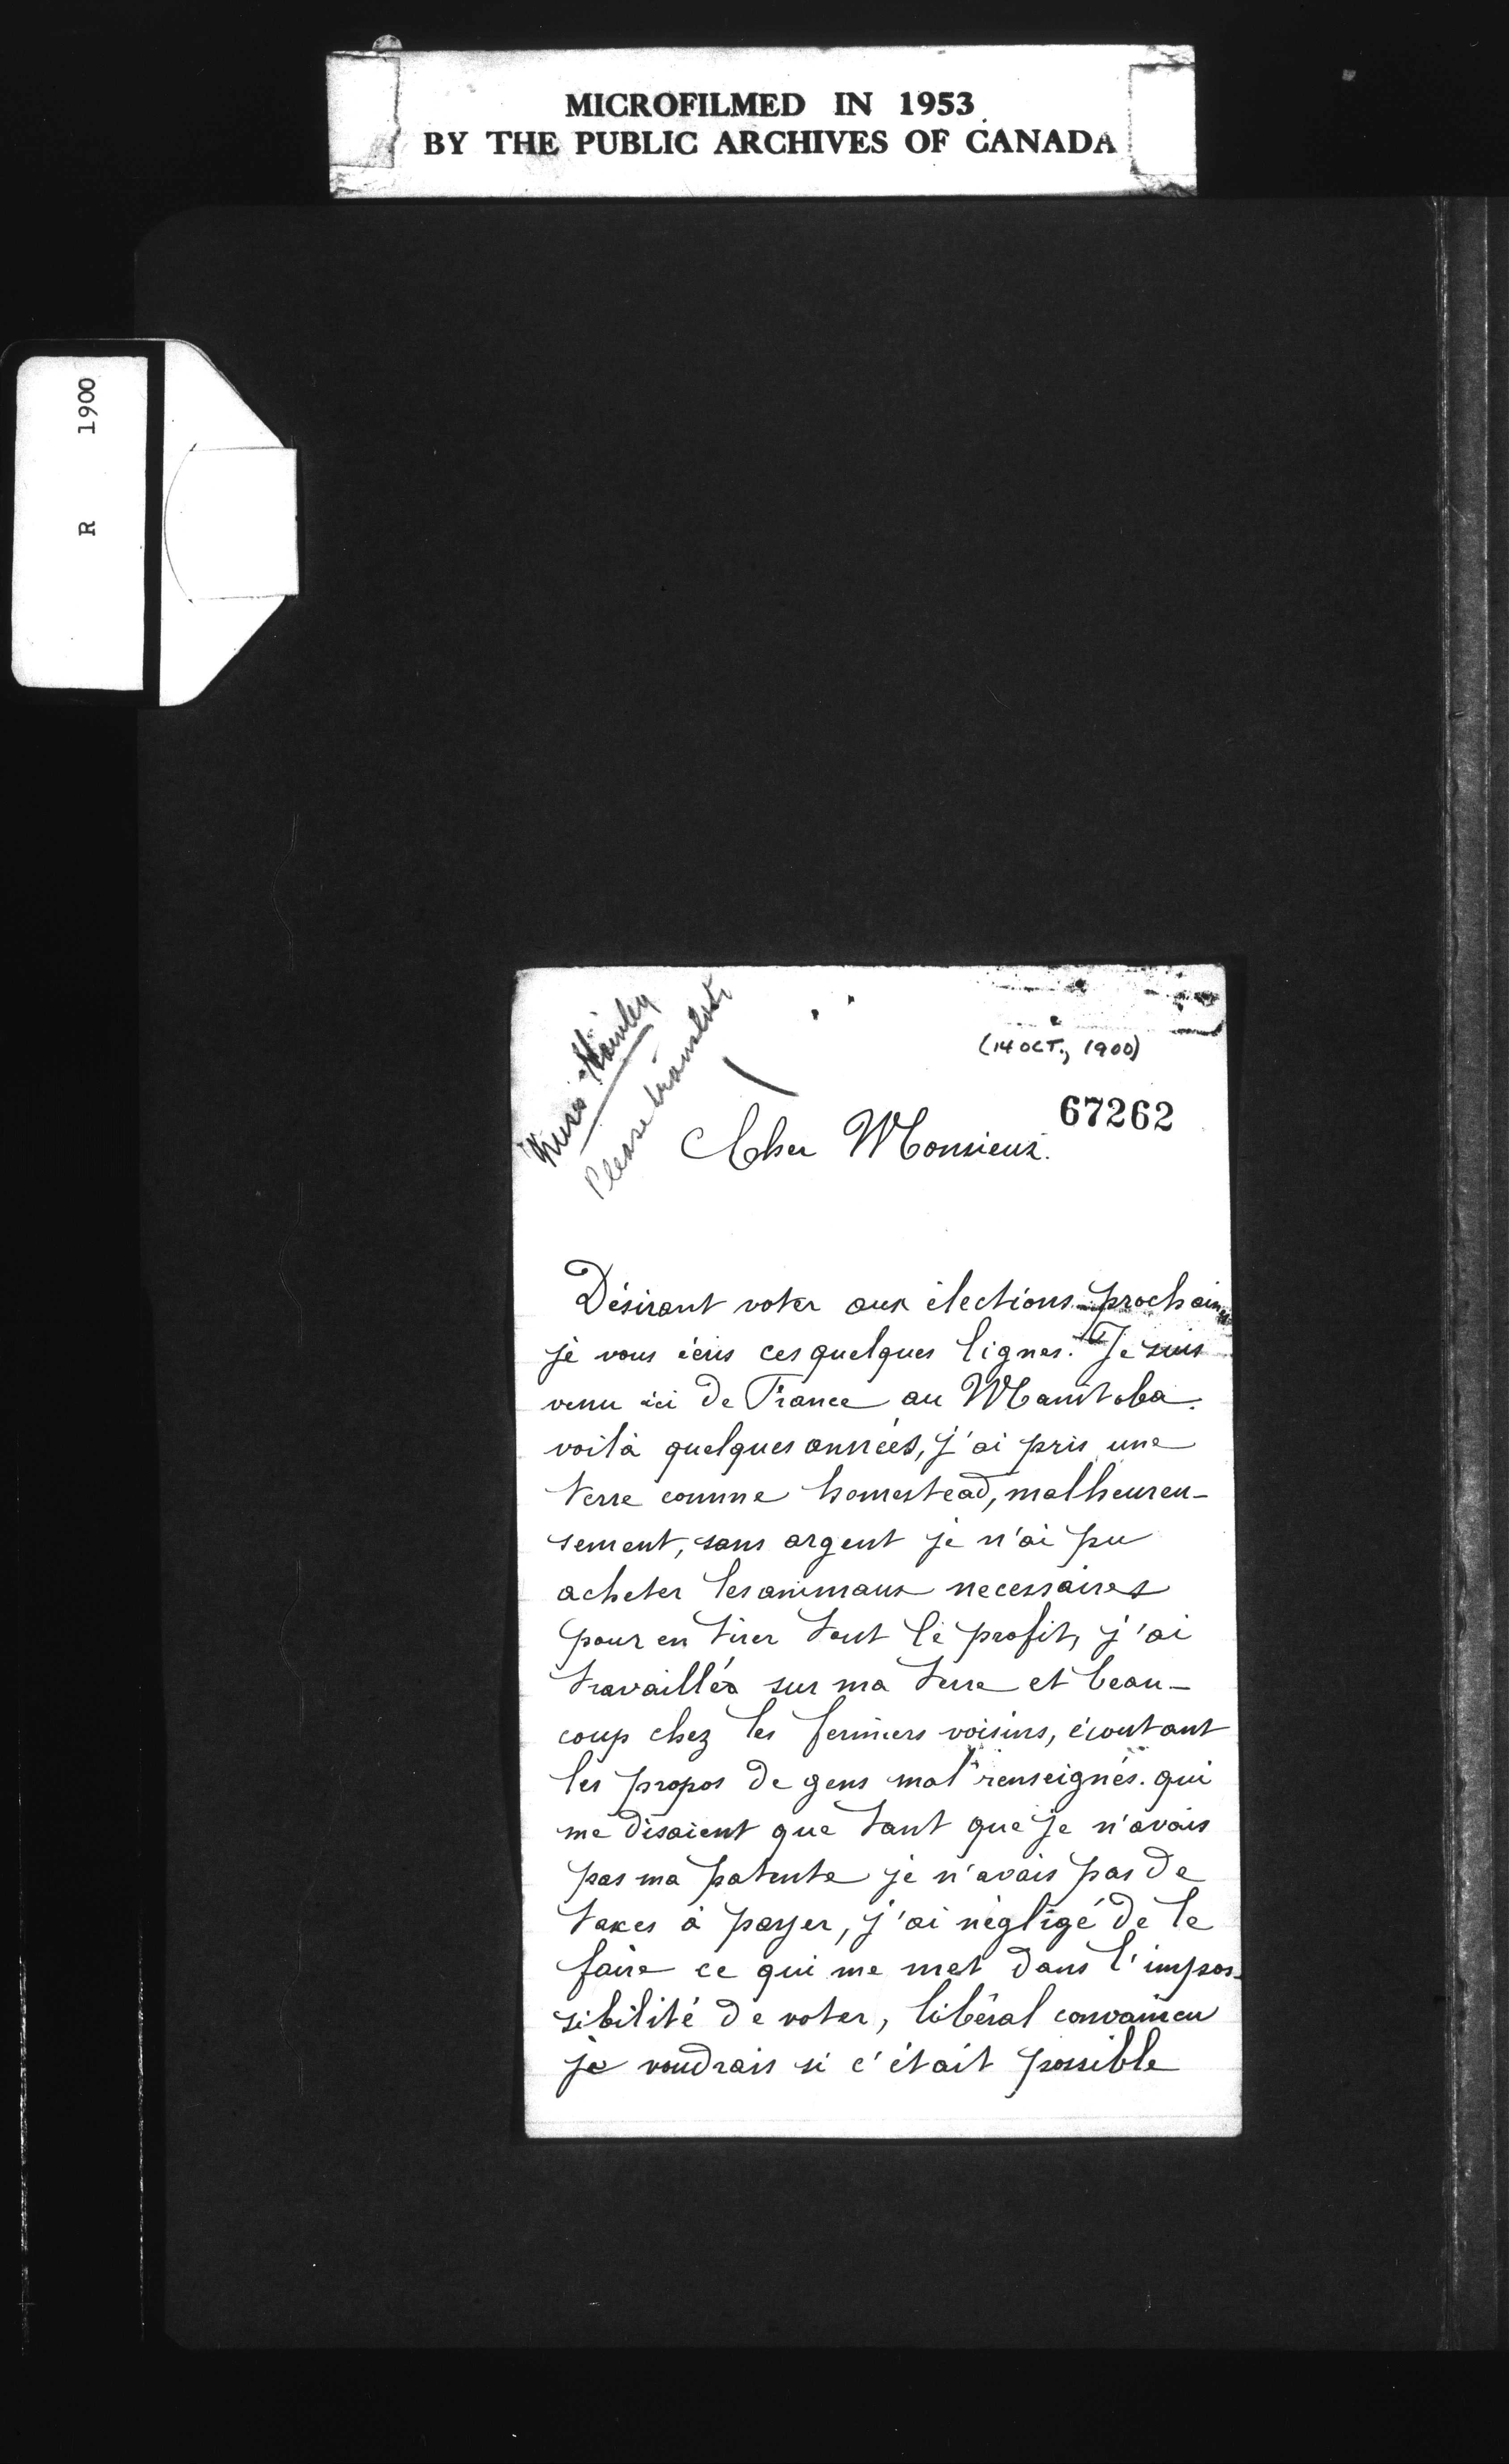 MICROFILMED IN 1953
BY THE PUBLIC ARCHIVES OF CANADA
R 1900
Miss
Please translate
(14 OCT., 1900)
67262
Cher Monsieur.
Désirant voter aux élections prochaines
je vous écris ces quelques lignes. Je suis
venu ici de France au Manitoba.
voilà quelques années, j'ai pris une
terre comme homestead, malheureu-
sement, sans argent je n'ai pu
acheter les animaux necessaires
pour en tirer tout le profit, j'ai
travaillés sur ma terre et beau-
coup chez les fermiers voisins, écoutant
les propos de gens mal renseignés. qui
me disaient que tant que je n'avais
pas ma patente je n'avais pas de
taxes à payer, j'ai négligé de le
faire ce qui me met dans l'impos-
sibilité de voter, libéral convaincu
je voudrais si c'était possible